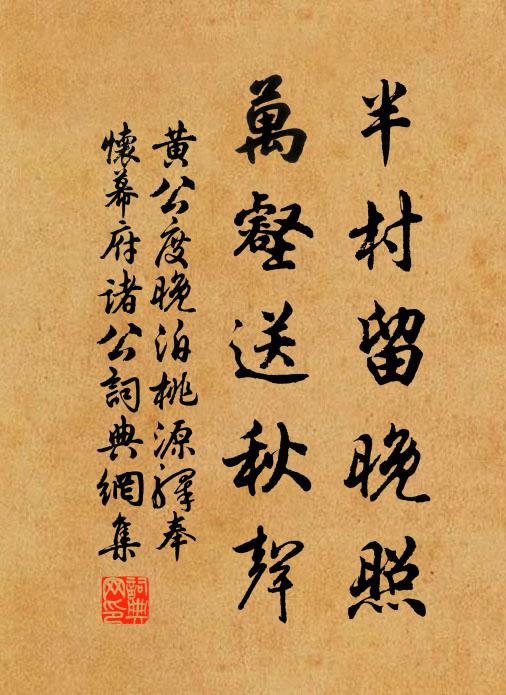 半村留晚照
萬壑送秋聲
黄公度晚泊桃源驛奉
懷幕府諸公詞典網集
詞典
网印